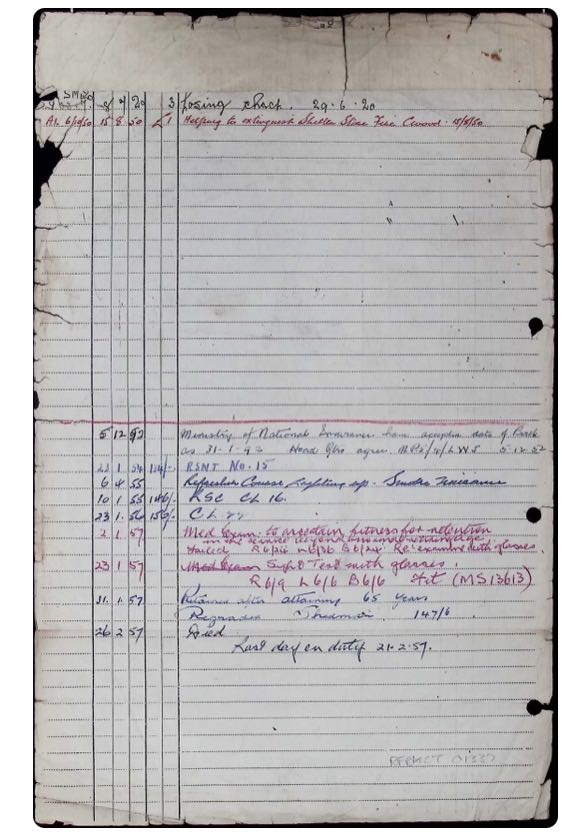 SM
8 7 20 3 Losing chact. 29.6.20
A1. 6/10/50 15 8 50 £1 Helping to extinguish Shelter Fire 15/8/50
5 12 52 Ministry of National Insurance have date of Birth
as 31-1-92 Head Qrs agree. 5.12.52
1 54 RSNT No. 15
6 4 55 Refresher Course Lighting up.
10 1 55 146/- RSC CL 16.
23 1 56 CL
2 1 57 Med Exam to ascertain fitness for retention
in the service beyond normal retiring age
Failed R6/24 L6/36 B6/24 Re'examine with glasses.
23 1 57 Med Exam Sight Test with glasses.
R6/9 L6/6 B6/6 Fit (MS 13613)
31. 1. 57 Retained after attaining 65 years
Regraded 147/6
26 2 57 Died
Last day on duty 21.2.57.